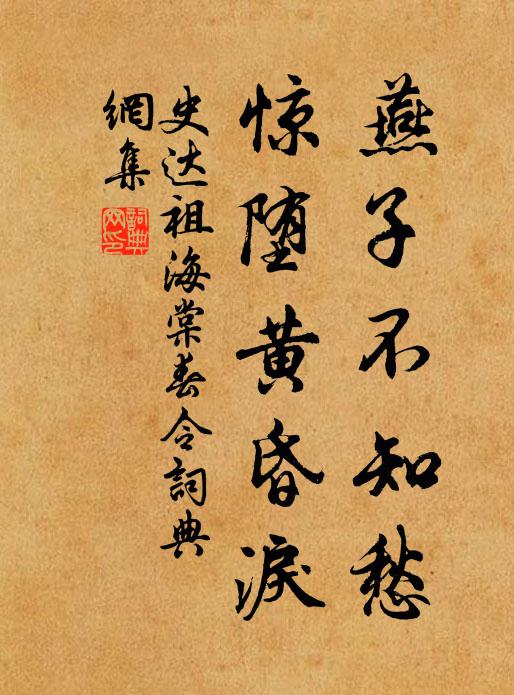 燕子不知愁
惊堕黄昏淚
史达祖海棠春令詞典
網集
詞典
网印